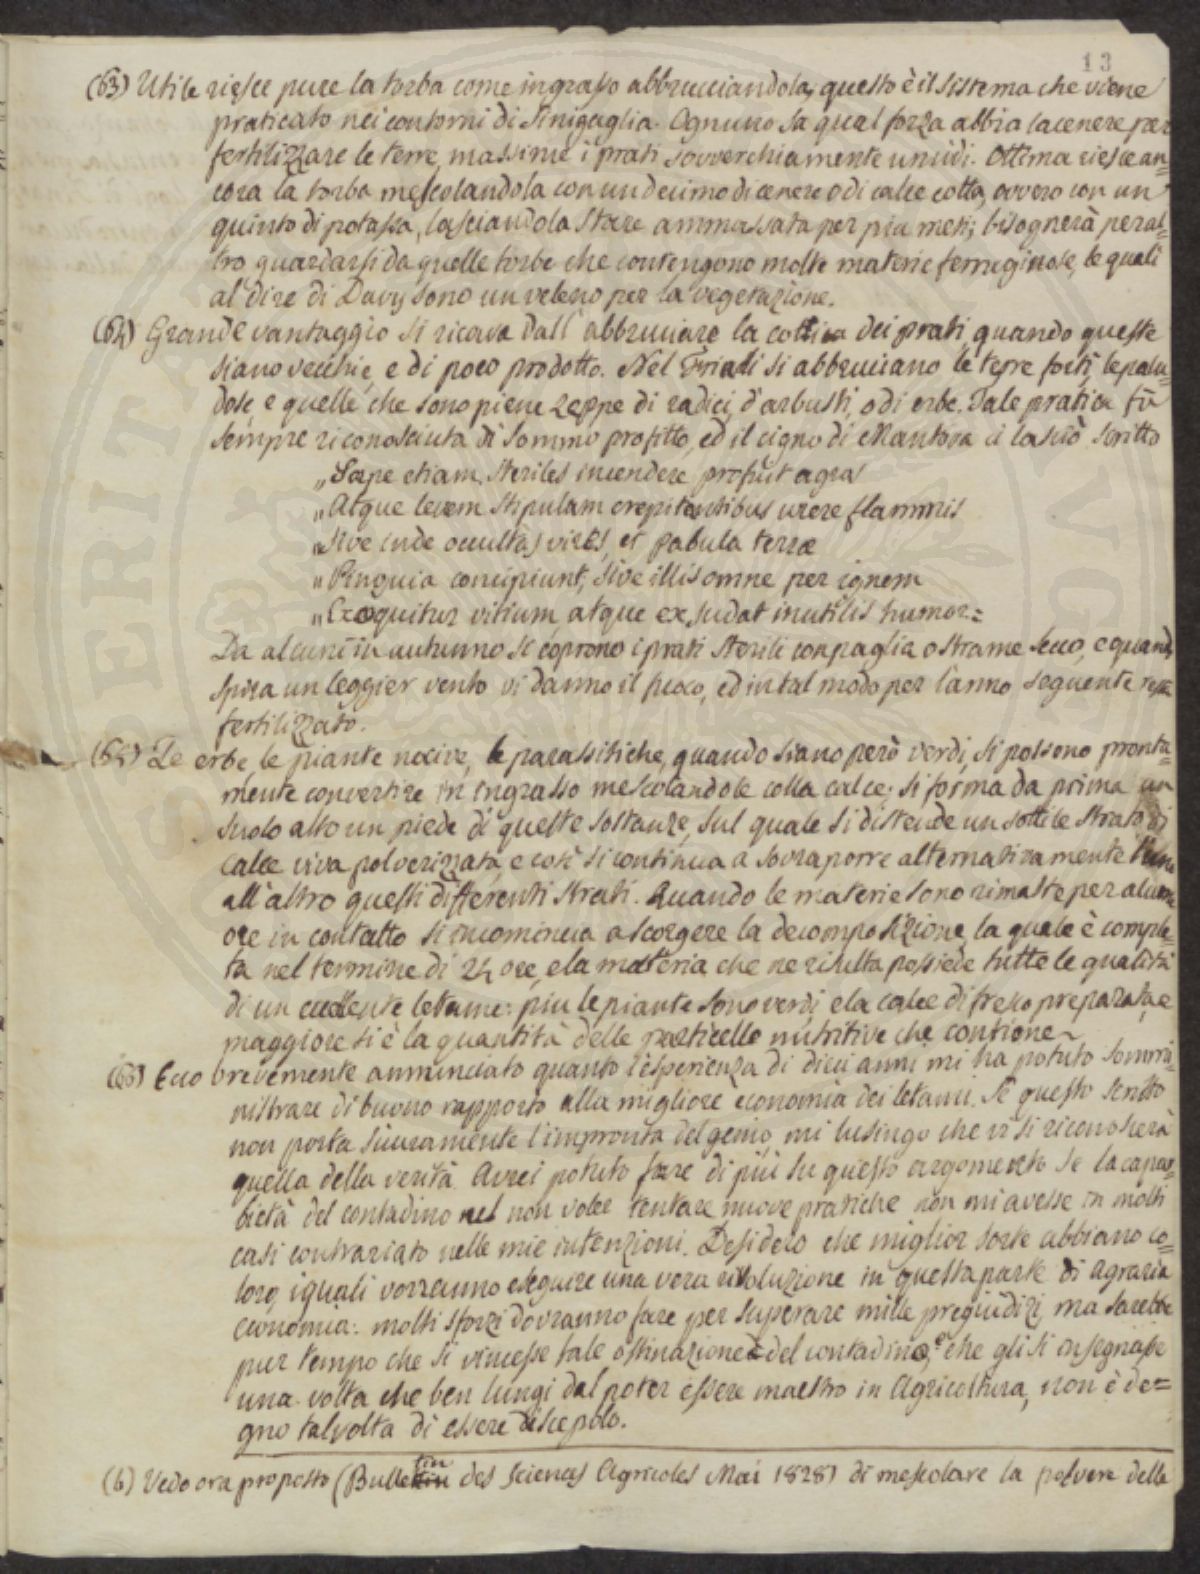 13
(63) Utile riesce pure la torba come ingrasso abbrucciandola, questo è il sistema che viene
praticato nei contorni di Sinigaglia. Ognuno sa qual forza abbia la cenere per
fertilizzare le terre, massime i prati sovverchiamente umidi. Ottima riesce an=
cora la torba mescolandola con un decimo di cenere o di calce cotta, ovvero con un
quinto di potassa, lasciandola stare ammassata per più mesi; bisognerà peral=
tro guardarsi da quelle torbe che contengono molte materie ferruginose, le quali
al dire di Davy sono un veleno per la vegetazione.
(64) Grande vantaggio si ricava dall'abbruciare la cottica dei prati, quando queste
siano vecchie, e di poco prodotto. Nel Friuli si abbruciano le terre forti, le palu=
dose, e quelle che sono piene zeppe di radici, d'arbusti, o di erbe. Tale pratica fù
sempre riconosciuta di sommo profitto, ed il cigno di Mantova ci lasciò scritto
„Sæpe etiam steriles incendere profuit agros
„Atque levem stipulam crepitantibus urere flammis
„Sive inde occultas vires, et pabula terræ
„Pinguia concipiunt, sive illis omne per ignem
„Excoquitur vitium, atque exsudat inutilis humor.=
Da alcuni in autunno si coprono i prati sterili con paglia o strame secco, e quando
spira un leggier vento vi danno il fuoco, ed in tal modo per l'anno seguente resta
fertilizzato.
(65) Le erbe, le piante nocive, le parassitiche, quando siano però verdi, si possono pronta=
mente convertire in ingrasso mescolandole colla calce: si forma da prima un
suolo alto un piede di queste sostanze, sul quale si distende un sottile strato di
calce viva polverizzata, e così si continua a sovraporre alternativamente l'uno
all'altro questi differenti strati. Quando le materie sono rimaste per alcune
ore in contatto si incomincia a scorgere la decomposizione, la quale è comple=
ta nel termine di 24 ore, e la materia che ne risulta possiede tutte le qualità
di un eccellente letame: più le piante sono verdi, e la calce di fresco preparata, e
maggiore si è la quantità delle particelle nutritive che contiene~
(66) Ecco brevemente annunciato quanto l'esperienza di dieci anni mi ha potuto sommi=
nistrare di buono rapporto alla migliore economia dei letami. Se questo scritto
non porta sicuramente l'impronta del genio, mi lusingo che vi si riconoscerà
quella della verità. Avrei potuto fare di più su questo argomento se la capar=
bietà del contadino nel non voler tentare nuove pratiche non mi avesse in molti
casi contrariato nelle mie intenzioni. Desidero che miglior sorte abbiano co=
loro, i quali vorranno eseguire una vera rivoluzione in questa parte di agraria
economia: molti sforzi dovranno fare per superare mille pregiudizi, ma sarebbe
pur tempo che si vincesse tale ostinazione del contadino, e che gli si insegnasse
una volta che ben lungi dal poter essere maestro in Agricoltura, non è de=
gno talvolta di essere discepolo.
(6) Vedo ora proposto (Bulletin des Sciences Agricoles Mai 1828) di mescolare la polvere delle